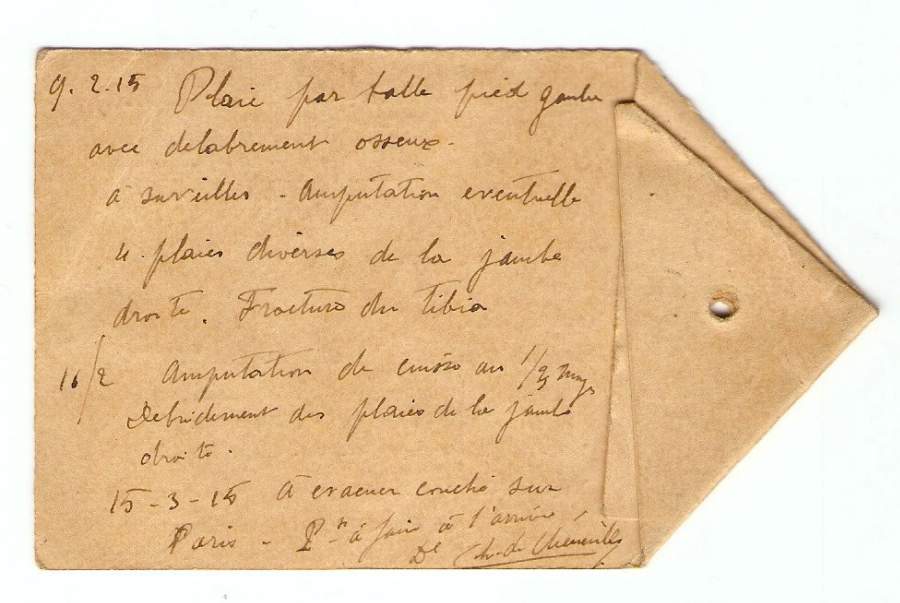 9.2.15 Plaie par balle pied gauche
avec delabrement osseux -
à surveiller - Amputation eventuelle
4 plaies diverses de la jambe
droite. Fracture du tibia
16/2 Amputation de cuisse au 1/3 moy
Debridement des plaies de la jambe
droite.
15-3-15 à evacuer couché sur
Paris - Pt à faire à l'arrivée
Dr